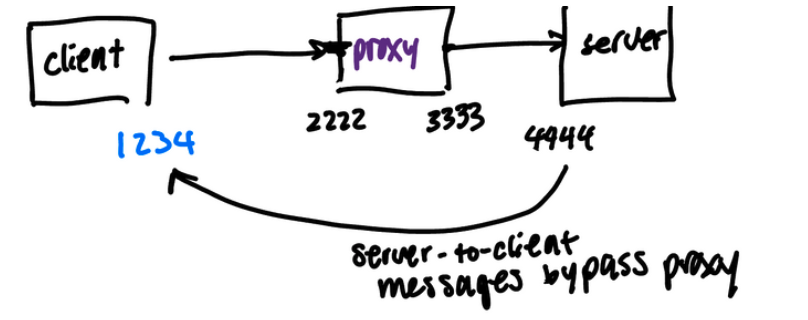 client
proxy
server
1234
2222
3333
4444
server-to-client
messages bypass proxy